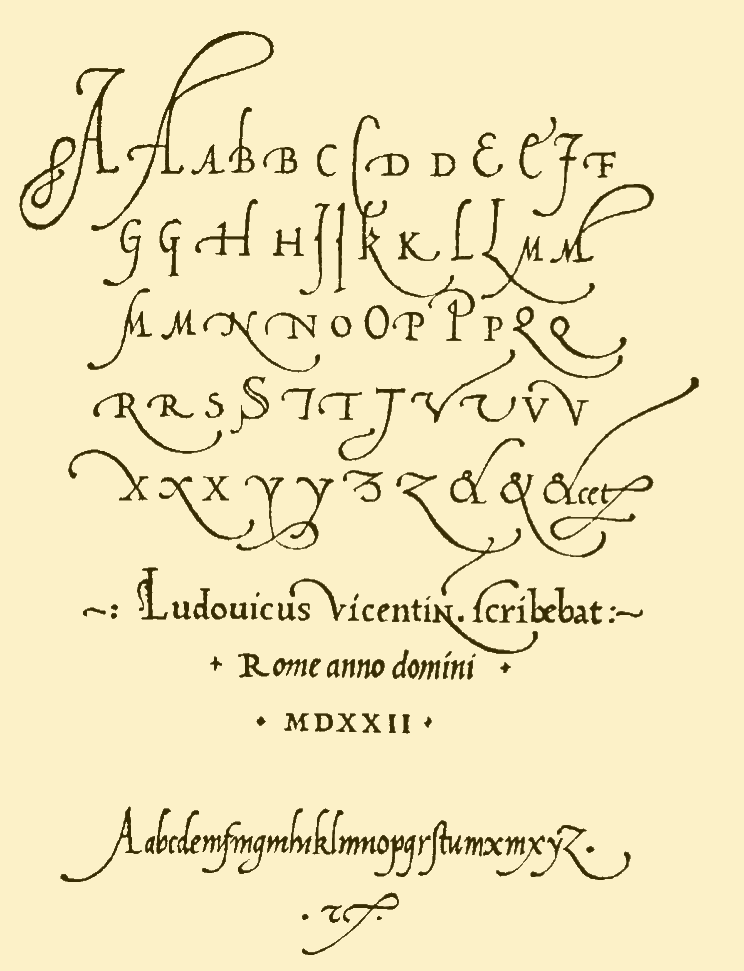 A A A B B C D D D E E F F
G G H H I I K K L L M M
M M N N O O P P P Q Q
R R S S T T T V V V V
X X X Y Y Z Z & & &cet
~: Ludouicus Vicentin. ſcribebat :~
+ Rome anno domini +
MDXXII
Aabcdemfmgmhiklmnopqrſtumxmxyz.